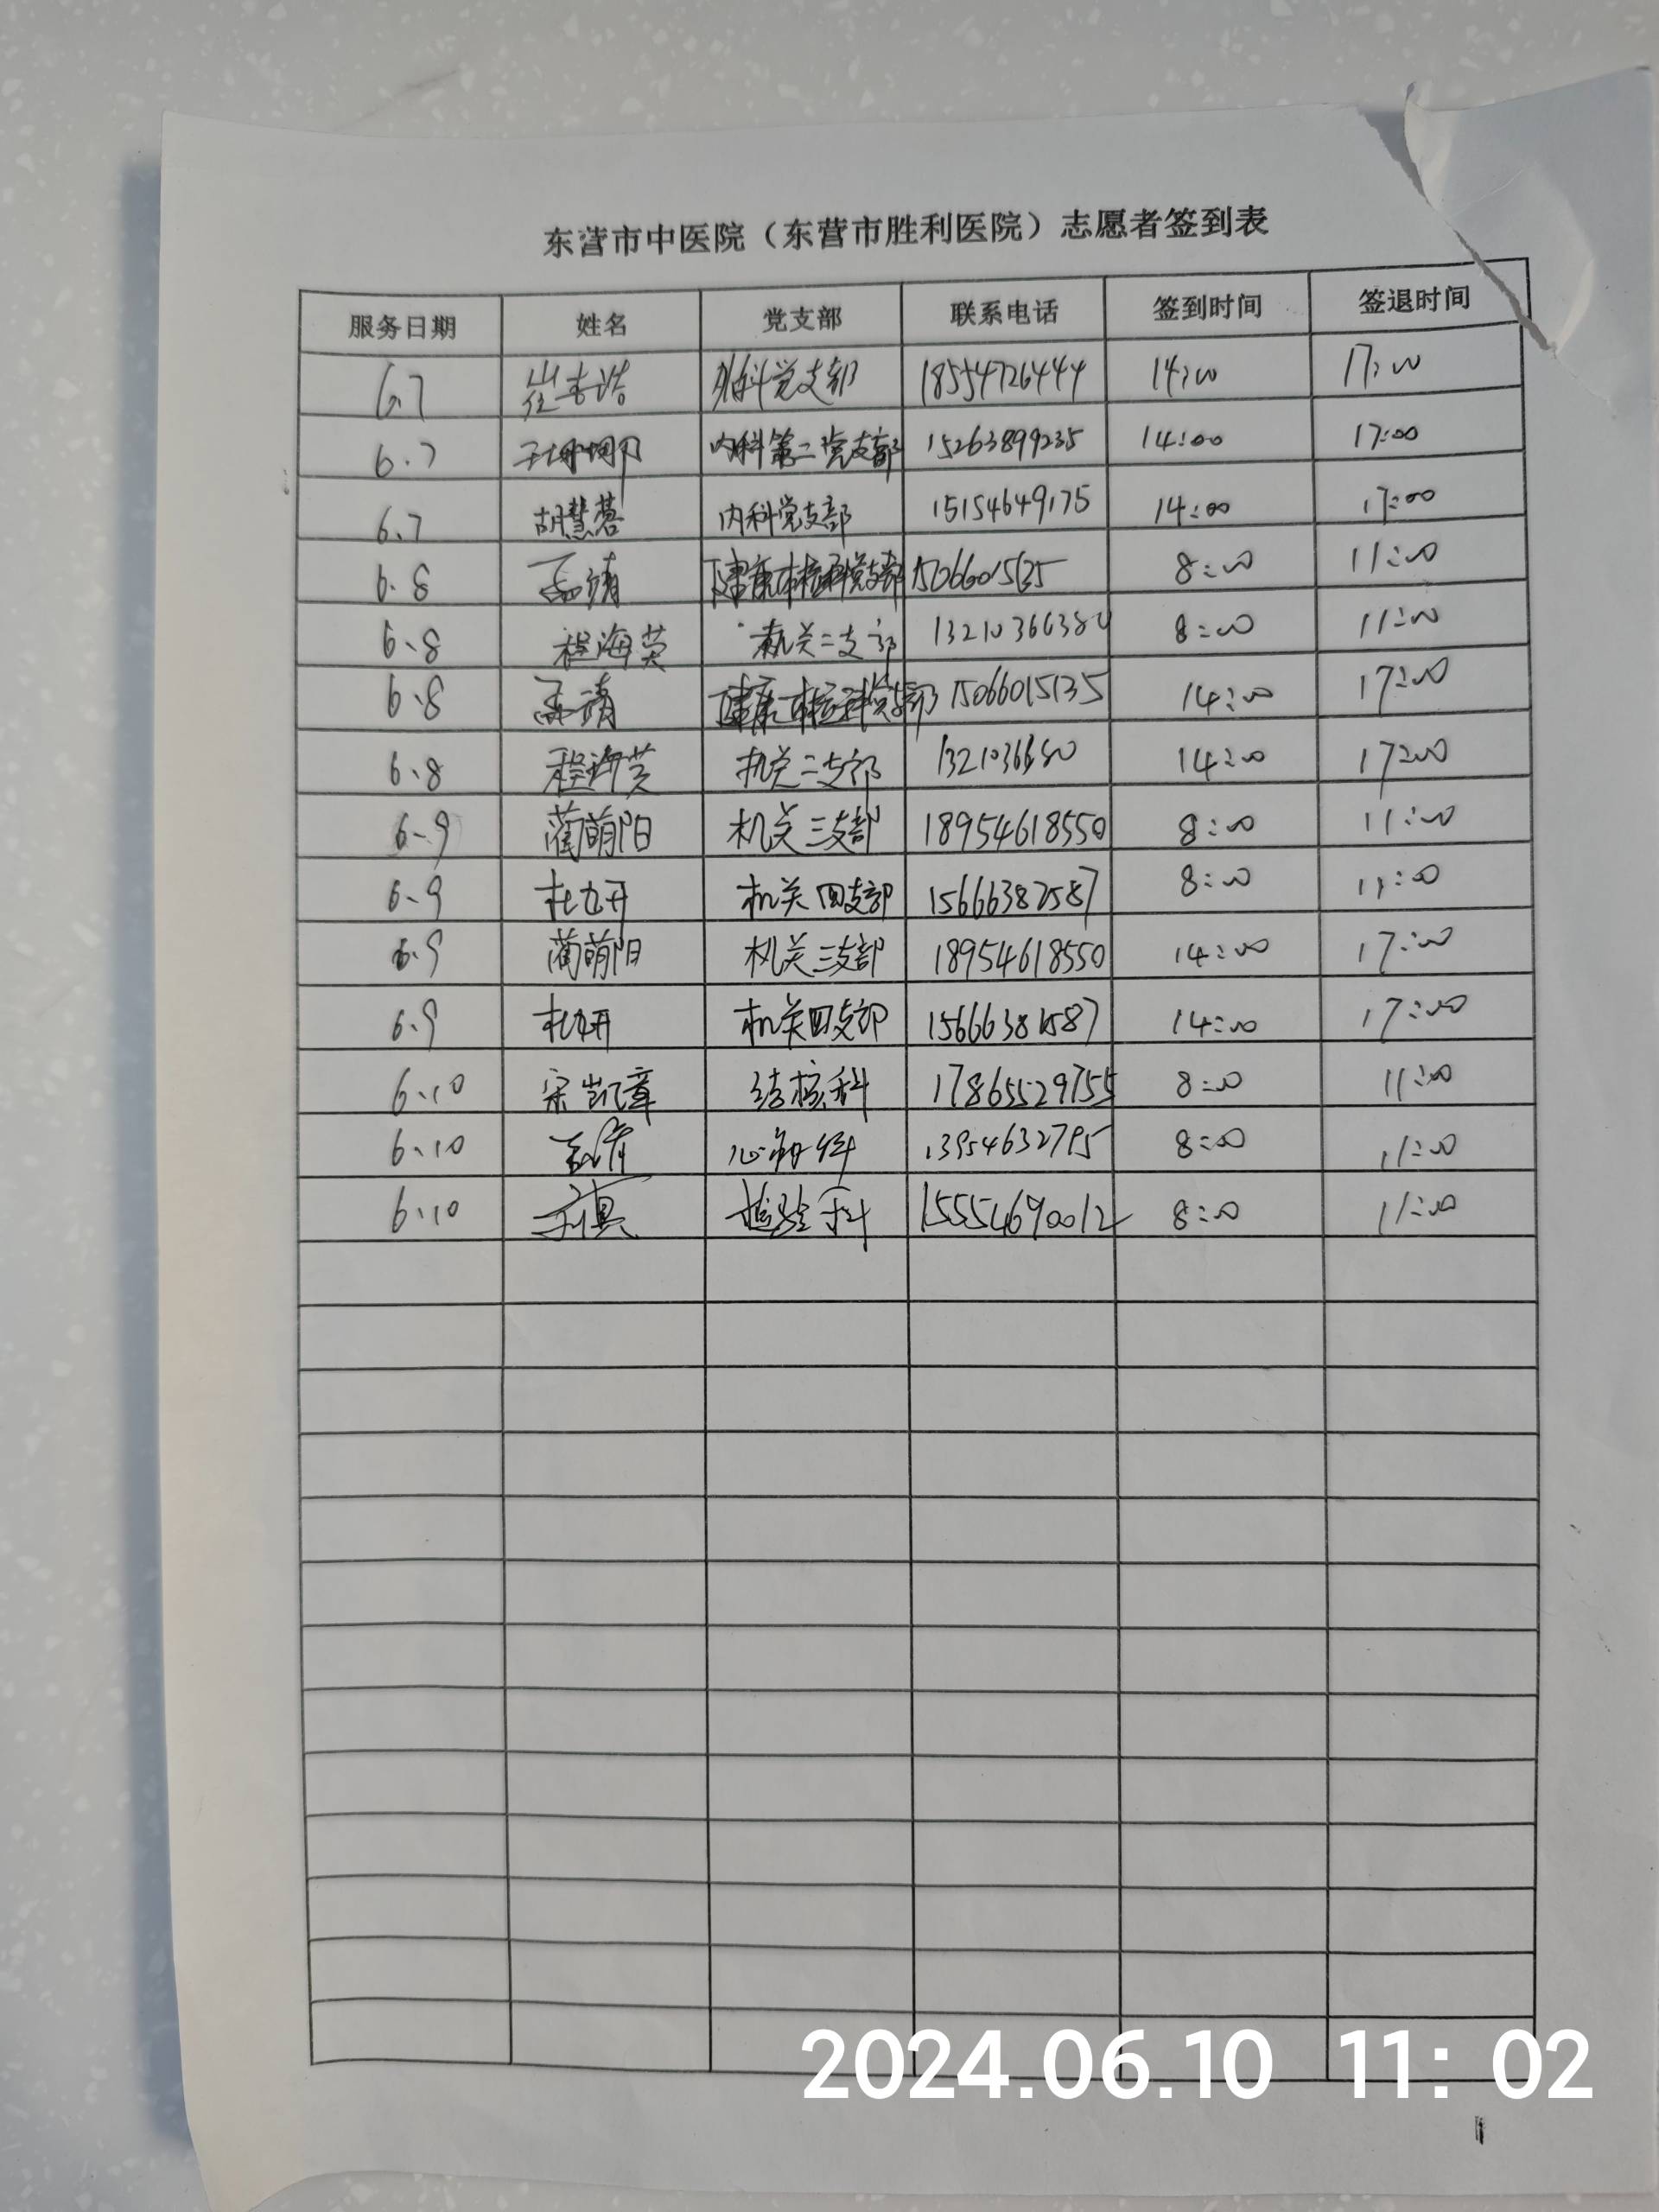 东营市中医院（东营市胜利医院）志愿者签到表
服务日期 姓名 党支部 联系电话 签到时间 签退时间
6.7 崔志浩 党支部 18554726444 14:00 17:00
6.7 内科第二党支部 15263899235 14:00 17:00
6.7 胡慧蓉 内科党支部 15154649175 14:00 17:00
6.8 孟靖 15066015135 8:00 11:00
6.8 程海英 机关二支部 13210366380 8:00 11:00
6.8 孟靖 15066015135 14:00 17:00
6.8 程海英 机关二支部 1321036380 14:00 17:00
6.9 蔺萌阳 机关三支部 18954618550 8:00 11:00
6.9 机关四支部 15666382587 8:00 11:00
6.9 蔺萌阳 机关三支部 18954618550 14:00 17:00
6.9 机关四支部 14:00 17:00
6.10 宋凯章 结核科 17865529755 8:00 11:00
6.10 13954632795 8:00 11:00
6.10 检验科 15554690012 8:00 11:00
2024.06.10 11:02